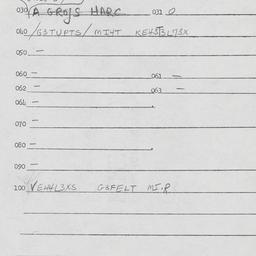 030 A GROSS HARC 031 0
040 /G3TUPTS/ MI4T KE4ST3L73X
050 —
060 — 061 —
062 — 063 —
064 —
070 —
080 —
090 —
100 VEH4L3XS G3FELT MI.R